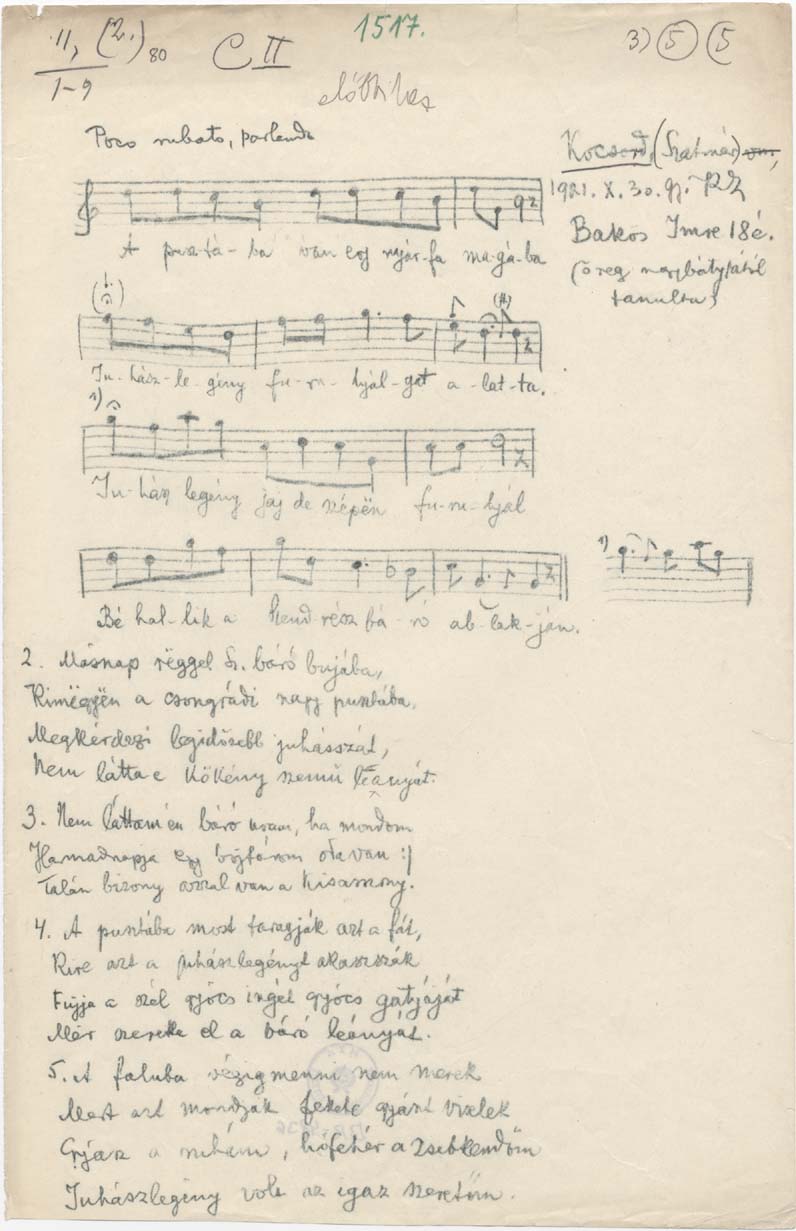 11, (2.) 80
1-9
C II
1517.
3) 5 5
Poco rubato, parlando
Kocsord, (Szatmár)
1921. X. 30. gy.
Bakos Imre 18 é.
(öreg nagybátyjától
tanulta)
A pusz-tá-ba van egy nyár-fa ma-gá-ba
Ju-hász-le-gény fu-ru-lyál-gat a-lat-ta.
1)
Ju-hász legény jaj de szépën fu-ru-lyál
1)
Bé hal-lik a Kend-rész bá-ró ab-lak-ján.
2. Másnap rëggel Sz. báró bujába,
Kimëgyën a csongrádi nagy pusztába,
Megkérdezi legidősebb juhásszát,
Nem látta e kökény szemű leányát.
3. Nem láttam én báró uram, ha mondom
Harmadnapja egy bojtárom oda van :|
Talán bizony azzal van a kisasszony.
4. A pusztába most faragják azt a fát,
Kire azt a juhászlegényt akasszák
Fújja a szél gyócs ingét gyócs gatyáját
Mér szerette el a báró leányát.
5. A faluba végigmenni nem merek
Mert azt mondják fekete gyászt viselek
Gyász a ruhám, hófehér a zsebkendőm
Juhászlegény volt az igaz szeretőm.